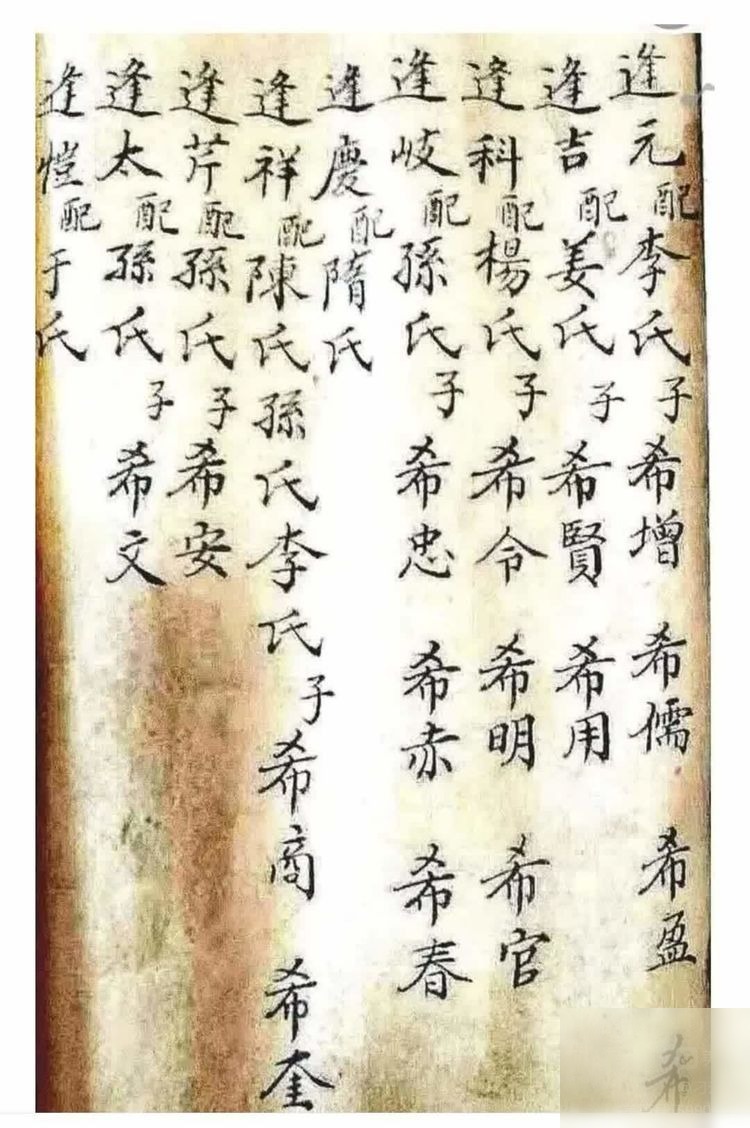 逢元配李氏子希增 希儒 希盈
逢吉配姜氏子希賢 希用
逢科配楊氏子希令 希明 希官
逢岐配孫氏子希忠 希赤 希春
逢慶配隋氏
逢祥配陳氏孫氏李氏子希商 希奎
逢芹配孫氏子希安
逢太配孫氏子希文
逢愷配于氏
希